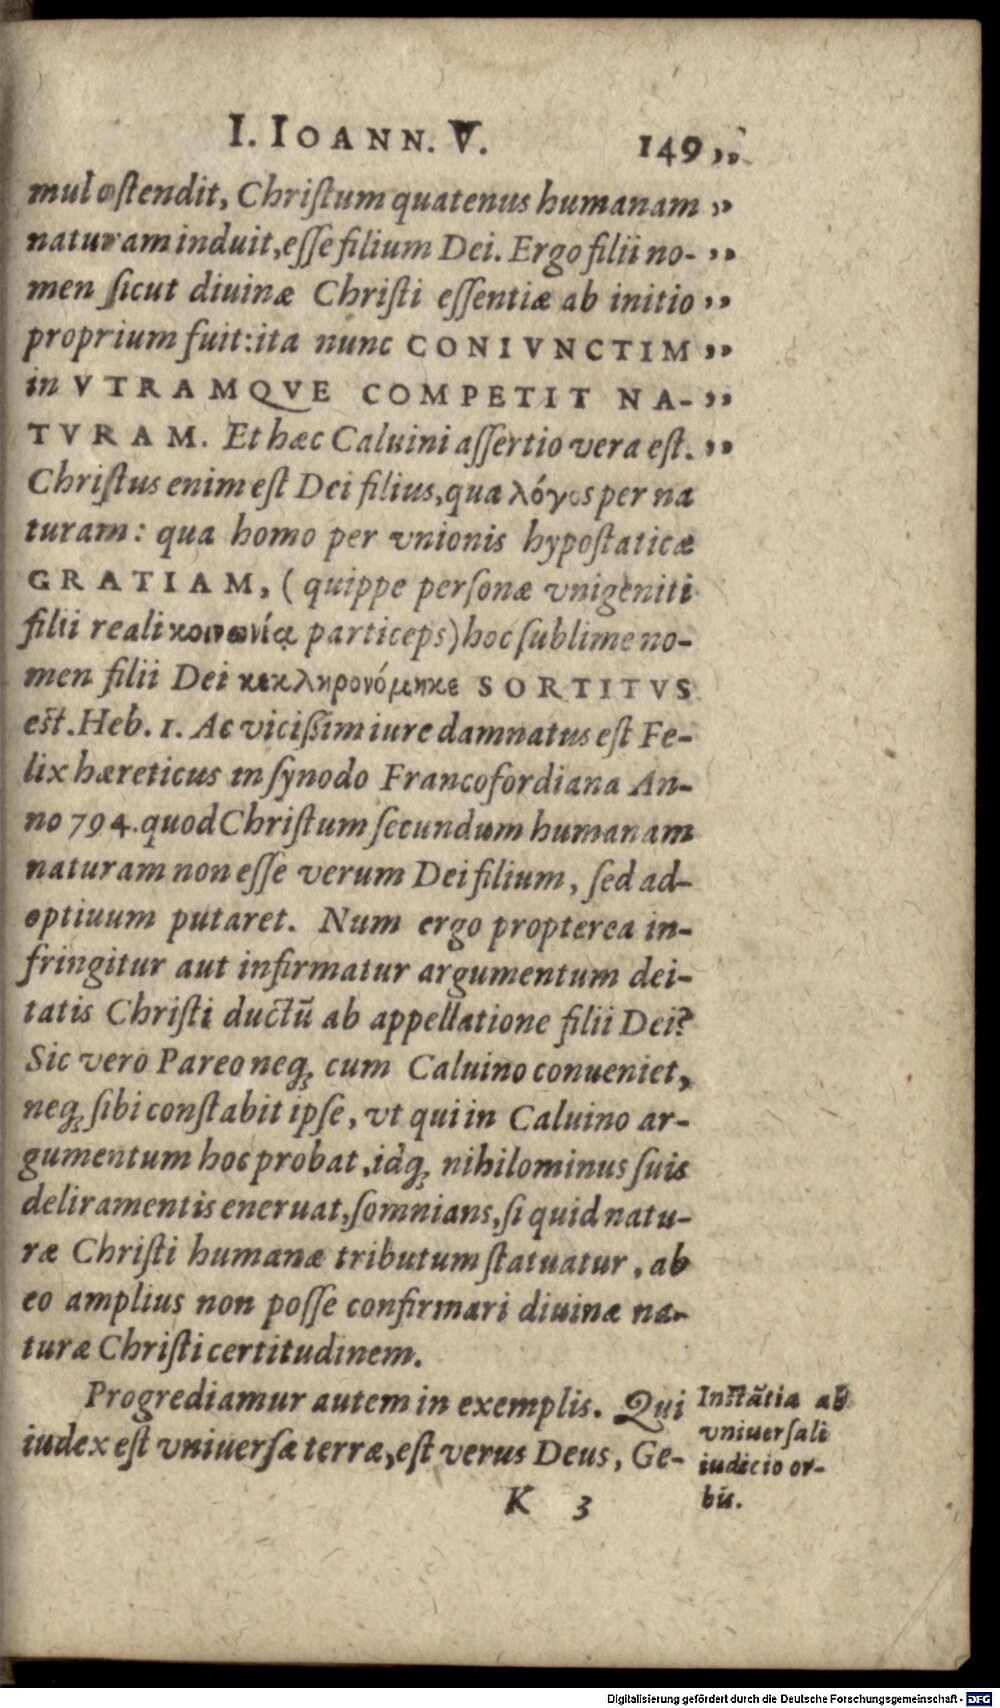 I. IOANN. V. 149 ,,
mul oſtendit, Chriſtum quatenus humanam ,,
naturam induit, eſſe filium Dei. Ergo filii no- ,,
men ſicut diuinæ Chriſti eſſentiæ ab initio ,,
proprium fuit: ita nunc CONIVNCTIM ,,
in VTRAMQVE COMPETIT NA- ,,
TVRAM. Et hæc Caluini aſſertio vera eſt. ,,
Chriſtus enim eſt Dei filius, qua λόγος per na
turam: qua homo per vnionis hypoſtaticæ
GRATIAM, (quippe perſonæ vnigeniti
filii reali κοινωνίᾳ particeps) hoc ſublime no-
men filii Dei κεκληρονόμηκε SORTITVS
eſt. Heb. 1. Ac vicißim iure damnatus eſt Fe-
lix hæreticus in ſynodo Francofordiana An-
no 794. quod Chriſtum ſecundum humanam
naturam non eſſe verum Dei filium, ſed ad-
optiuum putaret. Num ergo propterea in-
fringitur aut infirmatur argumentum dei-
tatis Chriſti ductũ ab appellatione filii Dei?
Sic vero Pareo neq; cum Caluino conueniet,
neq; ſibi conſtabit ipſe, vt qui in Caluino ar-
gumentum hoc probat, idq; nihilominus ſuis
deliramentis eneruat, ſomnians, ſi quid natu-
ræ Chriſti humanæ tributum ſtatuatur, ab
eo amplius non poſſe confirmari diuinæ na-
turæ Chriſti certitudinem.
Progrediamur autem in exemplis. Qui
iudex eſt vniuerſæ terræ, eſt verus Deus, Ge-
Inſtãtia ab
vniuerſali
iudicio or-
bis.
K 3
Digitalisierung gefördert durch die Deutsche Forschungsgemeinschaft - DFG